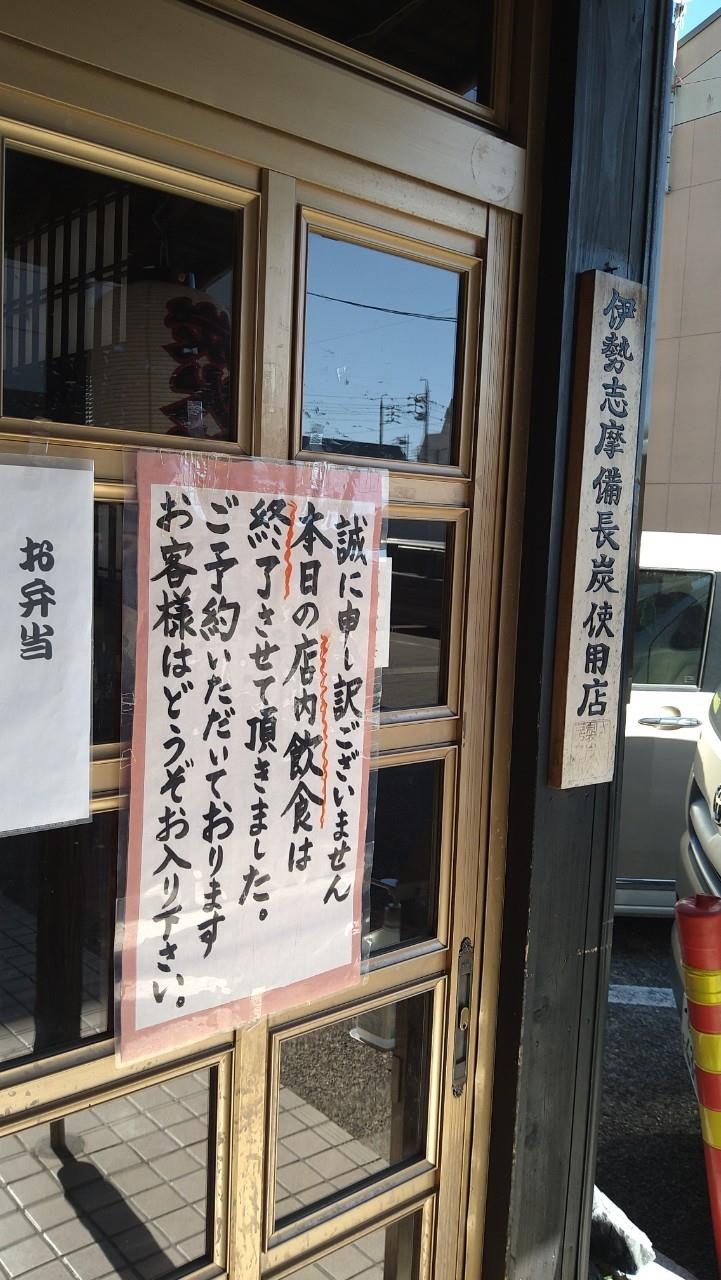 伊勢志摩備長炭使用店
誠に申し訳ございません
本日の店内飲食は
終了させて頂きました。
ご予約いただいております
お客様はどうぞお入り下さい。
お弁当